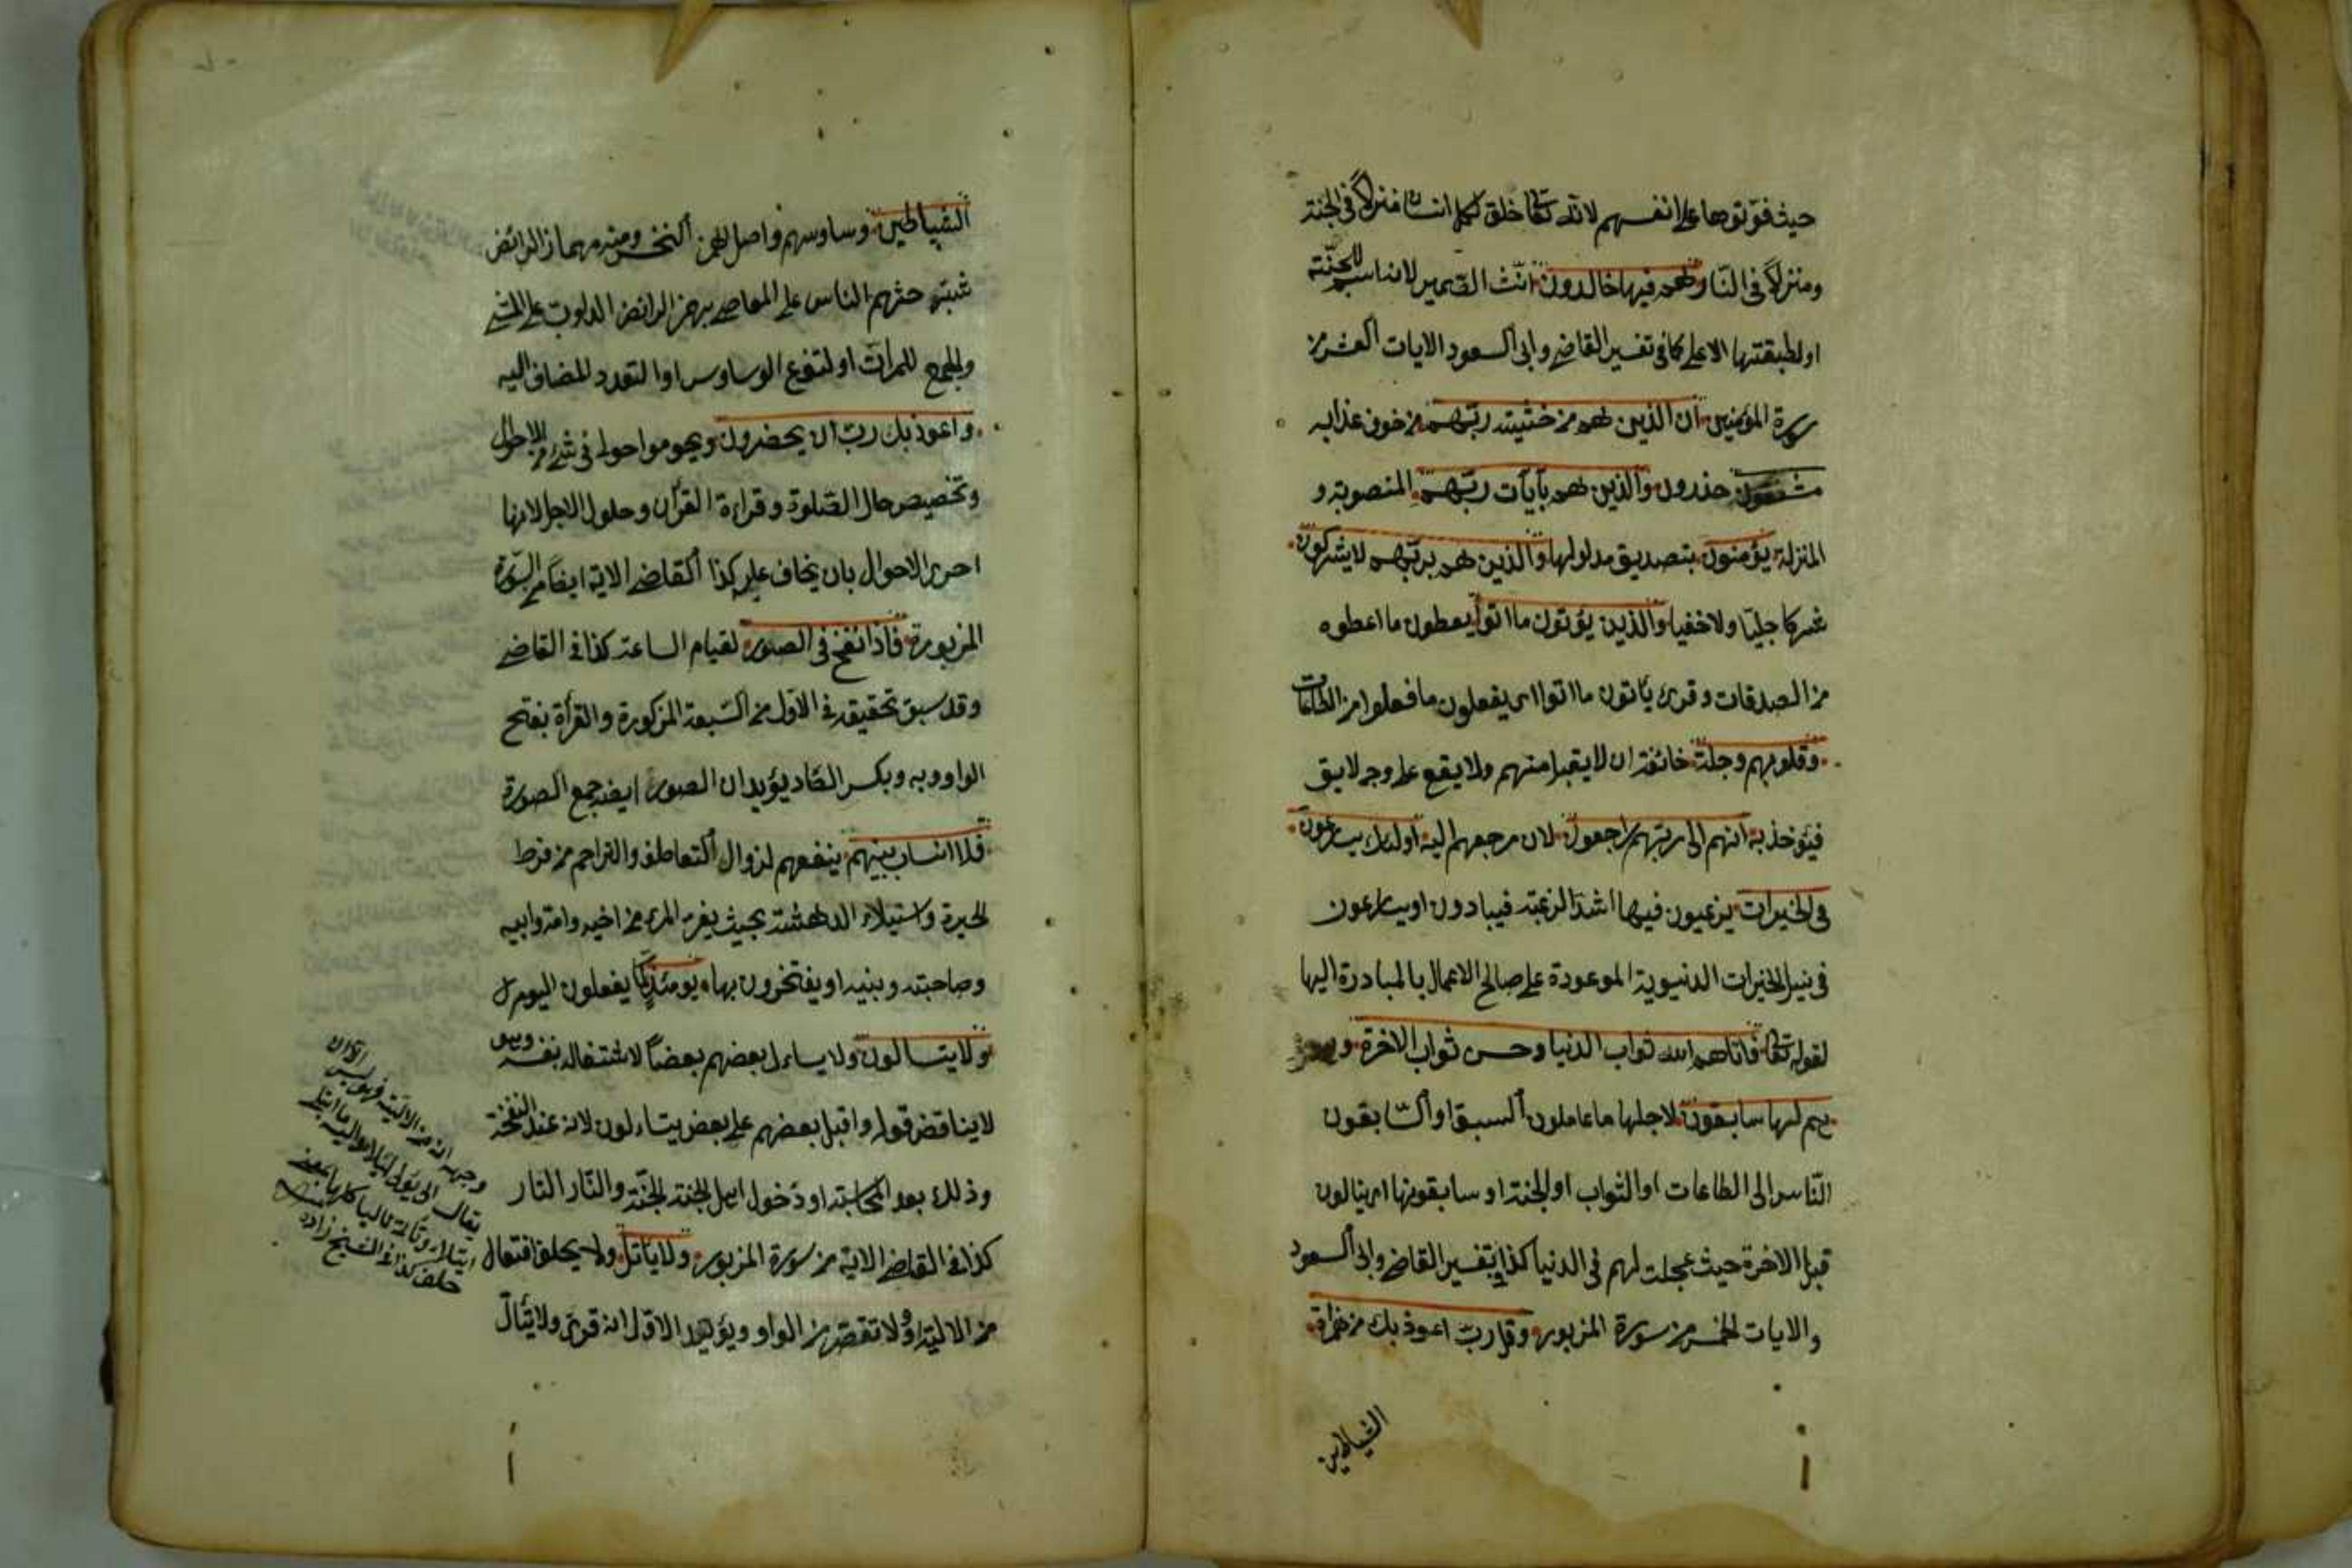 حيث فوّتوها على انفسهم لانه تعالى خلق لكل انسان منزلاً في الجنة
ومنزلاً في النار وهم فيها خالدون انّث الضمير لانه اسم للجنّة
او لطبقتها الاعلى كما في تفسير القاضي وابي السعود الايات العشر من
سورة المؤمنين ان الذين هم من خشية ربّهم من خوف عذابه
مشفقون حذرون والذين هم بآيات ربّهم المنصوبة و
المنزلة يؤمنون بتصديق مدلولها والذين هم بربّهم لا يشركون
شركا جليّا ولا خفيا والذين يؤتون ما اتوا يعطون ما اعطوه
من الصدقات وقرئ يأتون ما اتوا اى يفعلون ما فعلوا من الطاعات
وقلوبهم وجلة خائفة ان لا يقبل منهم ولا يقع على وجه لايق
فيؤخذ به انهم الى ربّهم راجعون لان مرجعهم اليه اولئك يسارعون
في الخيرات يرغبون فيها اشدّ الرغبة فيبادرون او يسارعون
في نيل الخيرات الدنيوية الموعودة على صالح الاعمال بالمبادرة اليها
لقوله تعالى فاتاهم الله ثواب الدنيا وحسن ثواب الاخرة و
هم لها سابقون لاجلها فاعلون السبق او السّابقون
النّاس الى الطاعات او الثواب او الجنة او سابقونها اى ينالون
قبل الاخرة حيث عجلت لهم في الدنيا كذا في تفسير القاضي وابي السعود
والايات الخمس من سورة المزبور وقل ربّ اعوذ بك من همزات
الشياطين
الشياطين وساوسهم واصل الهمز النخس ومنه مهماز الرائض
شبّه حثهم الناس على المعاصي بهمز الرائض الدواب على المشي
والجمع للمرات او لتنوع الوساوس او لتعدد المضاف اليه
واعوذ بك ربّ ان يحضرون ويحوموا حولى في شئ من الاحوال
وتخصيص حال الصّلوة وقراءة القرآن وحلول الاجل لانها
احرى الاحوال بان يخاف عليه كذا القاضي الاية ايضاً من السّورة
المزبورة فاذا نفخ في الصور لقيام الساعة كذا في القاضي
وقد سبق تحقيقه في الاول من السّبعة المذكورة والقرأة بفتح
الواو وبه وبكسر الصّاد يؤيد ان الصور ايضا جمع الصورة
فلا انساب بينهم ينفعهم لزوال التعاطف والتراحم من فرط
الحيرة واستيلاء الدهشة بحيث يفر المرء من اخيه وامه وابيه
وصاحبته وبنيه او يفتخرون بها يومئذ كما يفعلون اليوم
ولا يتسالون ولا يساءل بعضهم بعضاً لاشتغاله بنفسه وهو
لا يناقض قوله واقبل بعضهم على بعض يتساءلون لانه عند النفخة
وذلك بعد المحاسبة او دخول اهل الجنة الجنّة والنّار النار
كذا في القاضي الاية من سورة المزبور ولا يأتل ولا يحلف افتعال
من الالية او ولا تقصر من الواو ويؤيد الاول انه قرئ ولا يتألّ
وجهه انه من الالية فهو من
يقال الى يولى ايلاء
ابتلاء وتألى تاليا كلها بمعنى
حلف كذا في الشيخ زاده